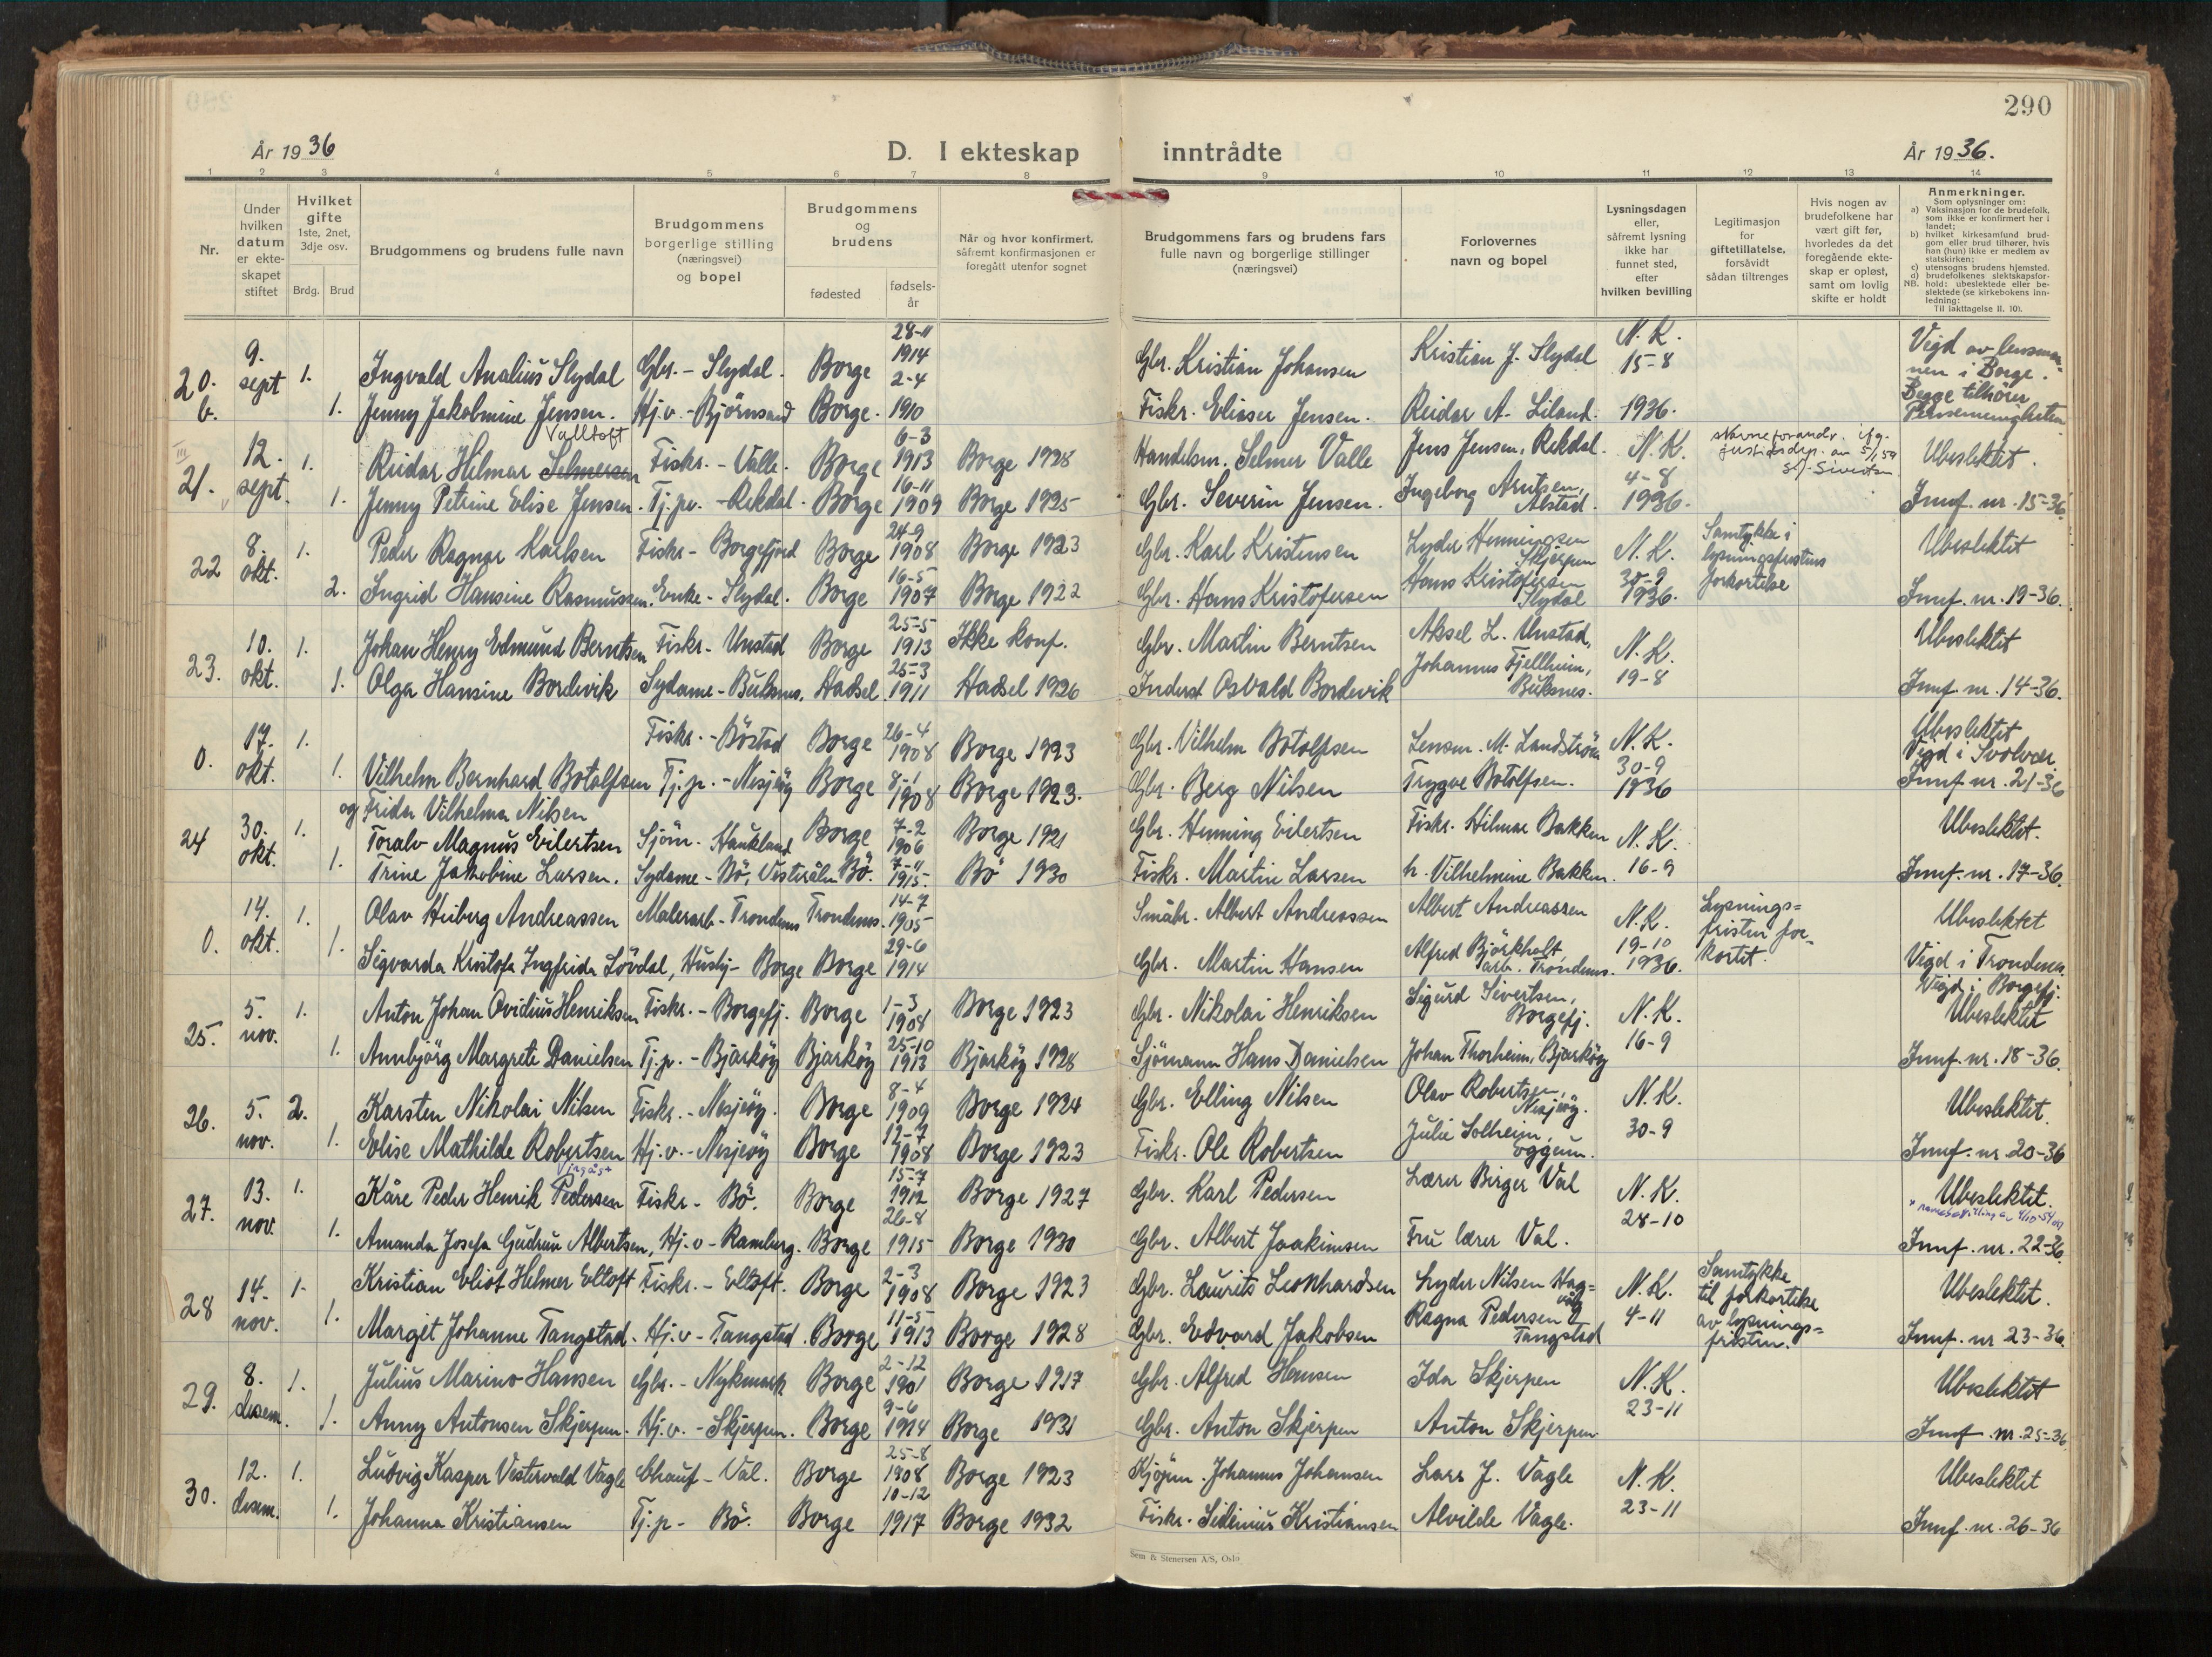 290
År 1936
D. I ekteskap inntrådte
År 1936.
1 2 3 4 5 6 7 8 9 10 11 12 13 14
Nr.
Under hvilken datum er ekteskapet stiftet
Hvilket gifte 1ste, 2net, 3dje osv.
Brdg. Brud
Brudgommens og brudens fulle navn
Brudgommens borgerlige stilling (næringsvei) og bopel
Brudgommens og brudens
fødested
fødselsår
Når og hvor konfirmert, såfremt konfirmasjonen er foregått utenfor sognet
Brudgommens fars og brudens fars fulle navn og borgerlige stillinger (næringsvei)
Forlovernes navn og bopel
Lysningsdagen eller, såfremt lysning ikke har funnet sted, efter hvilken bevilling
Legitimasjon for giftetillatelse, forsåvidt sådan tiltrenges
Hvis nogen av brudefolkene har vært gift før, hvorledes da det foregående ekteskap er opløst, samt om lovlig skifte er holdt
Anmerkninger.
Som oplysninger om:
a) Vaksinasjon for de brudefolk, som ikke er konfirmert her i landet;
b) hvilket kirkesamfund brudgom eller brud tilhører, hvis han (hun) ikke er medlem av statskirken;
c) utensogns brudens hjemsted.
d) brudefolkenes slektskapsforhold: ubeslektede eller beslektede (se kirkebokens innledning:
NB.
Til iakttagelse II. 10).
20. b. 9. sept 1. Ingvald Analius Slydal Gbr. - Slydal. Borge 28-11 1914 Gbr. Kristian Johansen Kristian J. Slydal N.K. 15-8 Vigd av lensmannen i Borge.
1. Jenny Jakobmine Jensen. Hj.v. - Björnsand Borge. 2-4 1910 Fiskr. Eliaser Jensen. Reidar A. Liland. 1936. Begge tilhører
Valltoft
21. 12. sept. 1. Reidar Hilmar Selmersen Fiskr. - Valle. Borge 6-3 1913 Borge 1928 Handelsm. Selmer Valle Jens Jensen, Rekdal. N.K. 4-8 Navneforandr. ifg. justisdep. av 5/1 59 Ubeslektet.
1. Jenny Petrine Elise Jensen. Tj.p. - Rekdal. Borge 16-11 1909 Borge 1925 Gbr. Severin Jensen. Ingeborg Arntsen, Alstad. 1936. Innf. nr. 15-36
22 8. okt. 1. Peder Ragnar Karlsen Fiskr - Borgefjord Borge 24-9 1908 Borge 1923 Gbr. Karl Kristensen Lyder Henningsen Skjerpen N.K. 30-9 Samtykke i lysningsfristens forkortelse Ubeslektet
2. Ingrid Hansine Rasmussen. Enke - Slydal. Borge 16-5 1907 Borge 1922 Gbr. Hans Kristofersen Hans Kristofersen Slydal 1936. Innf. nr. 19-36.
23. 10. okt. 1. Johan Henry Edmund Berntsen Fiskr - Unstad Borge 25-5 1913 Ikke konf. Gbr. Martin Berntsen Aksel L. Unstad, N.K. 19-8 Ubeslektet
1. Olga Hansine Bordevik Sydame - Buksnes. Hadsel 25-3 1911 Hadsel 1926 Inderst Osvald Bordevik Johannes Fjellheim, Buksnes. Innf. nr. 14-36.
0. 17. okt. 1. Vilhelm Bernhard Botolfsen Fiskr. - Böstad Borge 26-4 1908 Borge 1923 Gbr. Vilhelm Botolfsen Lensm. M. Landström N.K. 30-9 1936 Ubeslektet Vigd i Svolvær
1. og Frida Vilhelma Nilsen Tj.p. - Nesjeöy Borge 8-1 1908 Borge 1923. Gbr. Berg Nilsen Trygve Botolfsen. Innf. nr. 21-36
24 30. okt. 1. Toralv Magnus Eilertsen Sjöm. Haukland Borge 7-2 1906 Borge 1921 Gbr. Henning Eilertsen Fiskr. Hilmar Bakken N.K. 16-9 Ubeslektet.
1. Trine Jakobine Larsen. Sydame - Bö, Vesterålen Bö. 7-11 1915. Bö 1930 Fiskr. Martin Larsen h. Vilhelmine Bakken. Innf. nr. 17-36.
0. 14. okt. 1. Olav Heiberg Andreassen Malerarb. - Trondenes Trondenes. 14-7 1905 Småbr. Albert Andreassen Albert Andreassen N.K. 19-10 1936. Lysningsfristen forkortet Ubeslektet
1. Sigvarda Kristofa Ingfrida Lövdal, Hushj - Borge Borge 29-6 1914 Gbr. Martin Hansen Alfred Björkholt, arb. Trondenes. Vigd i Trondenes.
25. 5. nov. 1. Anton Johan Ovidius Henriksen Fiskr. - Borgefj. Borge 1-3 1908 Borge 1923 Gbr. Nikolai Henriksen Sigurd Sivertsen, Borgefj. N.K. 16-9 Vigd i Borgefj. Ubeslektet
1. Annbjörg Margrete Danielsen Tj.p. - Bjarköy Bjarköy 25-10 1913 Bjarköy 1928 Sjömann Hans Danielsen Johan Thorheim, Bjarköy Innf. nr. 18-36.
26. 5. nov. 2. Karsten Nikolai Nilsen Fiskr. - Nesjeöy. Borge 8-4 1909 Borge 1924 Gbr. Elling Nilsen Olav Robertsen, Nesjeöy. N.K. 30-9 Ubeslektet.
1. Elise Mathilde Robertsen Hj.v. - Nesjeöy Borge 12-7 1908 Borge 1923 Fiskr. Ole Robertsen Julie Solheim, Eggum. Innf. nr. 20-36
27. 13. nov. 1. Kåre Peder Henrik Pedersen Fiskr - Bö. Borge 15-7 1912 Borge 1927 Gbr. Karl Pedersen Lærer Birger Val N.K. 28-10 Ubeslektet.
1. Amanda Josefa Gudrun Albertsen, Hj.v - Ramberg. Borge 26-8 1915 Borge 1930 Gbr. Albert Joakimsen Fru lærer Val. Innf. nr. 22-36
28 14. nov. 1. Kristian Eliot Helmer Eltoft Fiskr. - Eltoft. Borge 2-3 1908 Borge 1923 Gbr. Laurits Leonhardsen Lyder Nilsen N.K. 4-11 Samtykke til forkortelse av lysningsfristen. Ubeslektet.
1. Margit Johanne Tangstad. Hj.v - Tangstad. Borge 11-5 1913 Borge 1928 Gbr. Edvard Jakobsen Ragna Pedersen Tangstad Innf. nr. 23-36
29. 8. desem. 1. Julius Marino Hansen Gbr. - Nykmark Borge 2-12 1901 Borge 1917 Gbr. Alfred Hansen Ida Skjerpen N.K. 23-11 Ubeslektet
1. Anny Antonsen Skjerpen. Hj.v. - Skjerpen. Borge 9-6 1914 Borge 1931 Gbr. Anton Skjerpen Anton Skjerpen Innf. nr. 25-36
30. 12. desem. 1. Ludvig Kasper Vestervald Vagle Chauf - Val. Borge 25-8 1908 Borge 1923 Kjöpm. Johannes Johansen Lars J. Vagle N.K. 23-11 Ubeslektet
1. Johanna Kristiansen Tj.p - Bö. Borge 10-12 1917 Borge 1932 Fiskr. Sidenius Kristiansen Alvilde Vagle. Innf. nr. 26-36
Sem & Stenersen A/S, Oslo